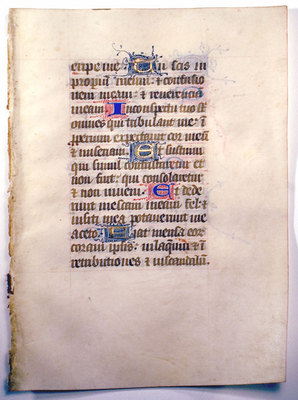 eripe me. Tu scis in
properiū meum: et confusio
nem meam: et reverēciā
meam. In conspectu tuo st̄
omnes qui tribulant me: ī
pperium expectavit cor meū
et miseriam. Et sustinui
qui simul contristaretur et
non fuit: qui consolaretur
et non inveni. Et dede
runt in escam meam fel: et
in siti mea potaverunt me
aceto. Fiat mensa eor
coram ipsis: in laqueū et ī
retributiones et in scandalū.